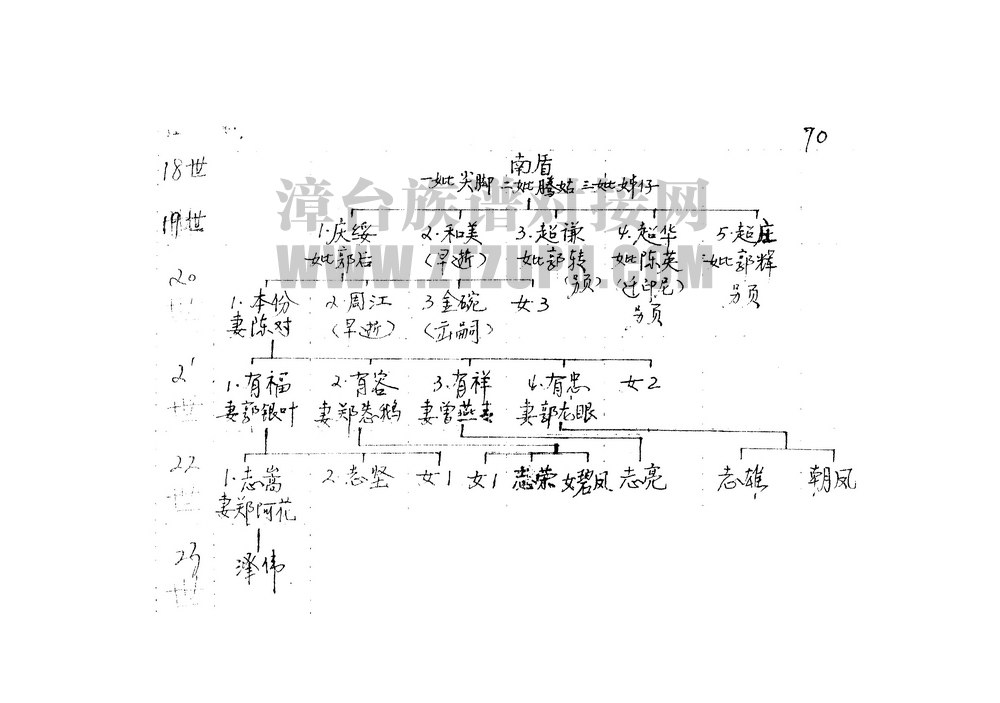 70
18世
南盾
一妣尖脚 二妣腾姑 三妣婶仔
漳台族谱对接网
WWW.ZTZUPU.COM
19世
1.庆绥 2.和美 3.超谦 4.超华 5.超庄
妣郭后 (早逝) 妣郭转 妣陈英 妣郭辉
(另页) (迁印尼) 另页
另页
20
1.本份 2.周江 3金碗 女3
妻陈对 (早逝) (出嗣)
21
1.有福 2.有容 3.有祥 4.有忠 女2
世 妻郭银叶 妻郑惹鹅 妻曾燕 妻郭龙眼
22
1.志嵩 2.志坚 女1 女1 志荣 女碧凤 志亮 志雄 朝凤
世 妻郑阿花
23
泽伟
世